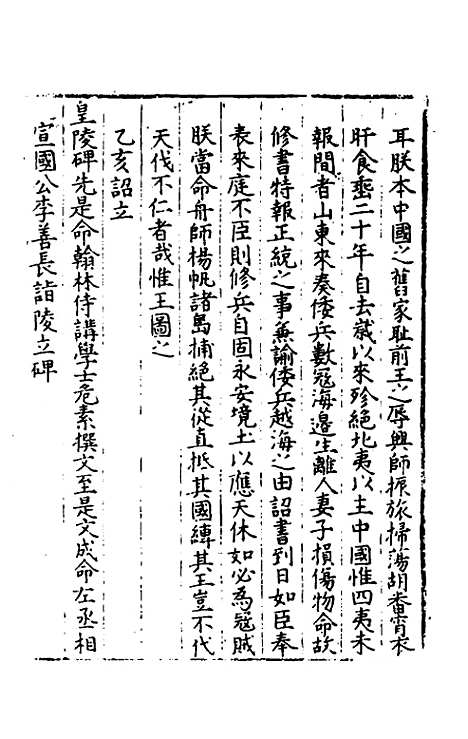 耳朕本中國之舊家耻前王之辱興師振旅掃蕩胡番宵衣
旰食垂二十年自去歲以來殄絕北夷以主中國惟四夷未
報間者山東來奏倭兵數寇海邊生離人妻子損傷物命故
修書特報正統之事兼諭倭兵越海之由詔書到日如臣奉
表來庭不臣則修兵自固永安境土以應天休如必為寇賊
朕當命舟師楊帆諸島捕絕其徒直抵其國縛其王豈不代
天伐不仁者哉惟王圖之
乙亥詔立
皇陵碑先是命翰林侍講學士危素撰文至是文成命左丞相
宣國公李善長詣陵立碑